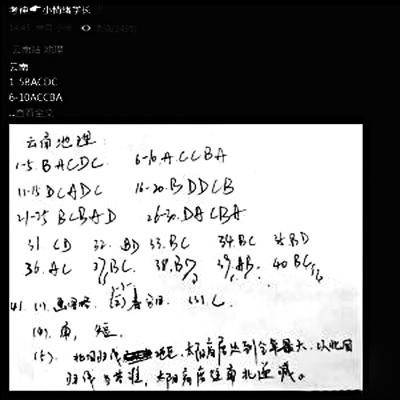 考神 小情绪学长
云南站 地理
云南
1-5BACDC
6-10ACCBA
..查看全文
云南地理:
1-5. BACDC 6-10. ACCBA
11-15 DCADC 16-20. BDDCB
21-25 BCBAD 26-30. DACBA
31 CD 32. BD 33. BC 34. BC 35. BD
36. AC 37. BC. 38. BD 39. AB. 40 BC
41. (1). (2) (3) C.
(4). 南, 短.
(5). 北回归线 太阳高度达到全年最大, 以北回
归线为基准, 太阳高度往南北递减。